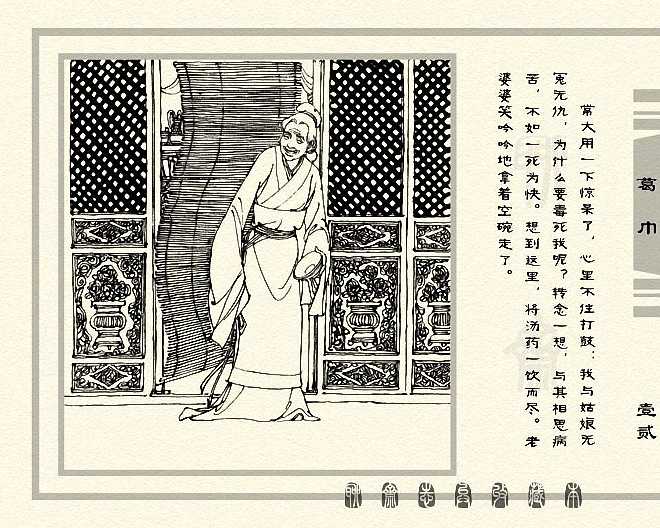 常大用一下惊呆了，心里不住打鼓：我与姑娘无
冤无仇，为什么要毒死我呢？转念一想，与其相思病
苦，不如一死为快。想到这里，将汤药一饮而尽。老
婆婆笑吟吟地拿着空碗走了。
葛巾
壹贰
聊斋志异收藏本